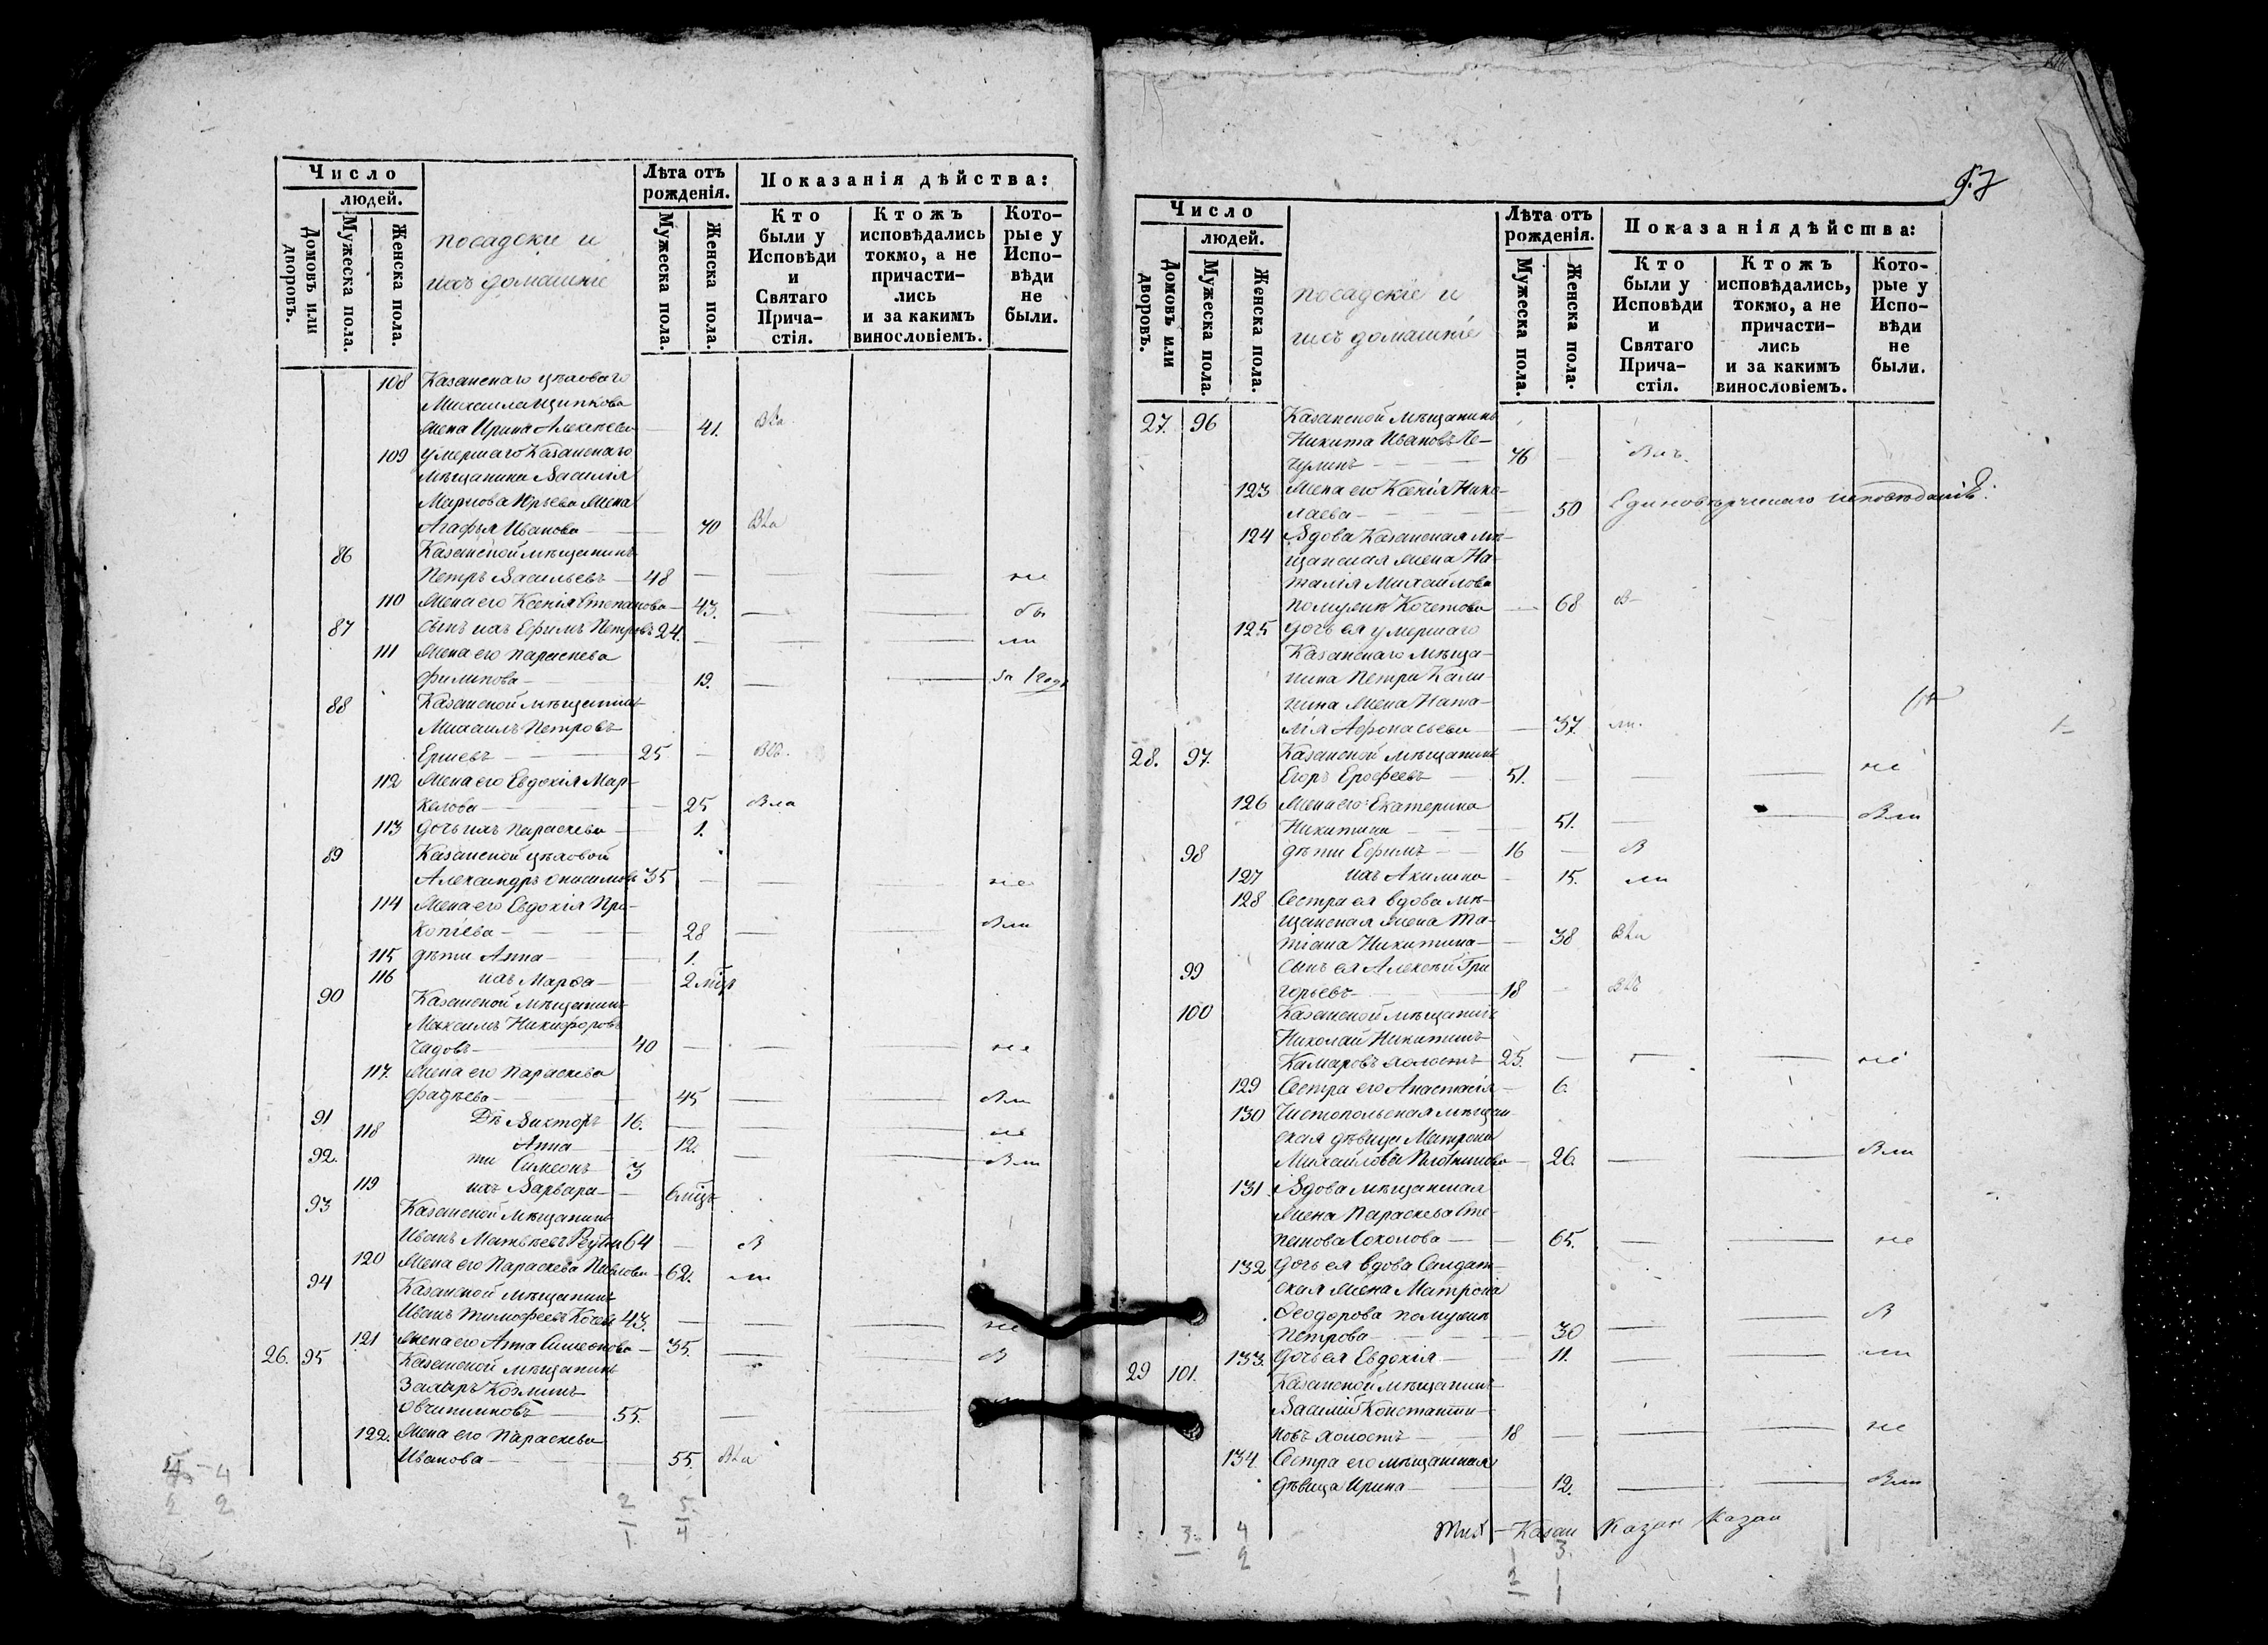 Число
людей.
Домовъ или дворовъ.
Мужеска пола.
Женска пола.
посадскіе и
ихъ домашніе
Лѣта отъ
рожденія.
Мужеска пола.
Женска пола.
Показанія дѣйства:
Кто
были у
Исповѣди
и
Святаго
Прича-
стія.
Ктожъ
исповѣдались
токмо, а не
причасти-
лись
и за какимъ
винословіемъ.
Кото-
рые у
Испо-
вѣди
не
были.
108 Казанскаго цѣховаго
Михаила Щипкова
жена Ирина Алексѣева 41.
109 умершаго Казанскаго
мѣщанина Василія
Маркова Юрьева жена
Агафья Иванова 70
86 Казанской мѣщанинъ
Петръ Васильевъ 48 не
110 Жена его Ксенія Степанова 43. бы
87 Сынъ ихъ Ефимъ Петровъ 24. ли
111 Жена его Параскева
Филипова 19.
88 Казанской мѣщанинъ
Михаилъ Петровъ
Ершевъ 25
112 Жена его Евдокія Мар-
келова 25 Была
113 Дочь ихъ Параскева 1.
89 Казанской цѣховой
Александръ Онисимовъ 35 не
114 Жена его Евдокія Про-
копіева 28 были
115 дѣти Анна 1.
116 ихъ Марфа 2 мѣц
90 Казанской мѣщанинъ
Максимъ Никифоровъ
Чадовъ 40 не
117. Жена его Параскева
Фадѣева 45 были
91 Дѣ Викторъ 16. не
118 Анна 12.
92. ти Симеонъ 3 были
119 ихъ Варвара 6 мѣцъ
93 Казанской мѣщанинъ
Иванъ Матвѣевъ 64 В
120 Жена его Параскева Павлова 62. ли
94 Казанской мѣщанинъ
Иванъ Тимофеевъ 43. не
121 Жена его Анна Симеонова 35. В
26. 95 Казанской мѣщанинъ
Захаръ Козминъ
Овчинниковъ 55.
122. Жена его Параскева
Иванова 55.
57
Число
людей.
Домовъ или дворовъ.
Мужеска пола.
Женска пола.
посадскіе и
ихъ домашніе
Лѣта отъ
рожденія.
Мужеска пола.
Женска пола.
Показанія дѣйства:
Кто
были у
Исповѣди
и
Святаго
Прича-
стія.
Ктожъ
исповѣдались,
токмо, а не
причасти-
лись
и за какимъ
винословіемъ.
Кото-
рые у
Испо-
вѣди
не
были.
27. 96 Казанской мѣщанинъ
Никита Ивановъ Пе-
чулинъ 76 былъ.
123 Жена его Ксенія Нико-
лаева 50 Единовѣрческаго исповѣданія
124 Вдова Казанская мѣ-
щанская жена На-
талія Михайлова
по мужѣ Кочетова 68 В
125 Дочь ея умершаго
Казанскаго мѣща-
нина Петра Кали-
нина жена Ната-
лія Афонасьева 37. ли.
28. 97. Казанской мѣщанинъ
Егоръ Ерофеевъ 51. не
126 Жена его Екатерина
Никитина 51. были
98 дѣти Ефимъ 16 В
127 ихъ Акилина 15. ли
128 Сестра ея вдова мѣ-
щанская жена Та-
тіана Никитина 38
99 Сынъ ея Алексѣй Гри
горьевъ 18
100 Казанской мѣщанинъ
Николай Никитинъ
Камаровъ холостъ 25. не
129 Сестра его Анастасія 6.
130 Чистопольская мѣщан
ская дѣвица Матрона
Михайлова Плотникова 26. были
131 Вдова мѣщанская
жена Параскева Сте-
панова Соколова 65. не
132 Дочь ея вдова Солдат-
ская жена Матрона
Ѳеодорова по мужѣ
Петрова 30 В
133. Дочь ея Евдокія 11. ли
29 101. Казанской мѣщанинъ
Василій Константи-
новъ холостъ 18 не
134. Сестра его мѣщанская
дѣвица Ирина 12. были
Казан Казан Казан